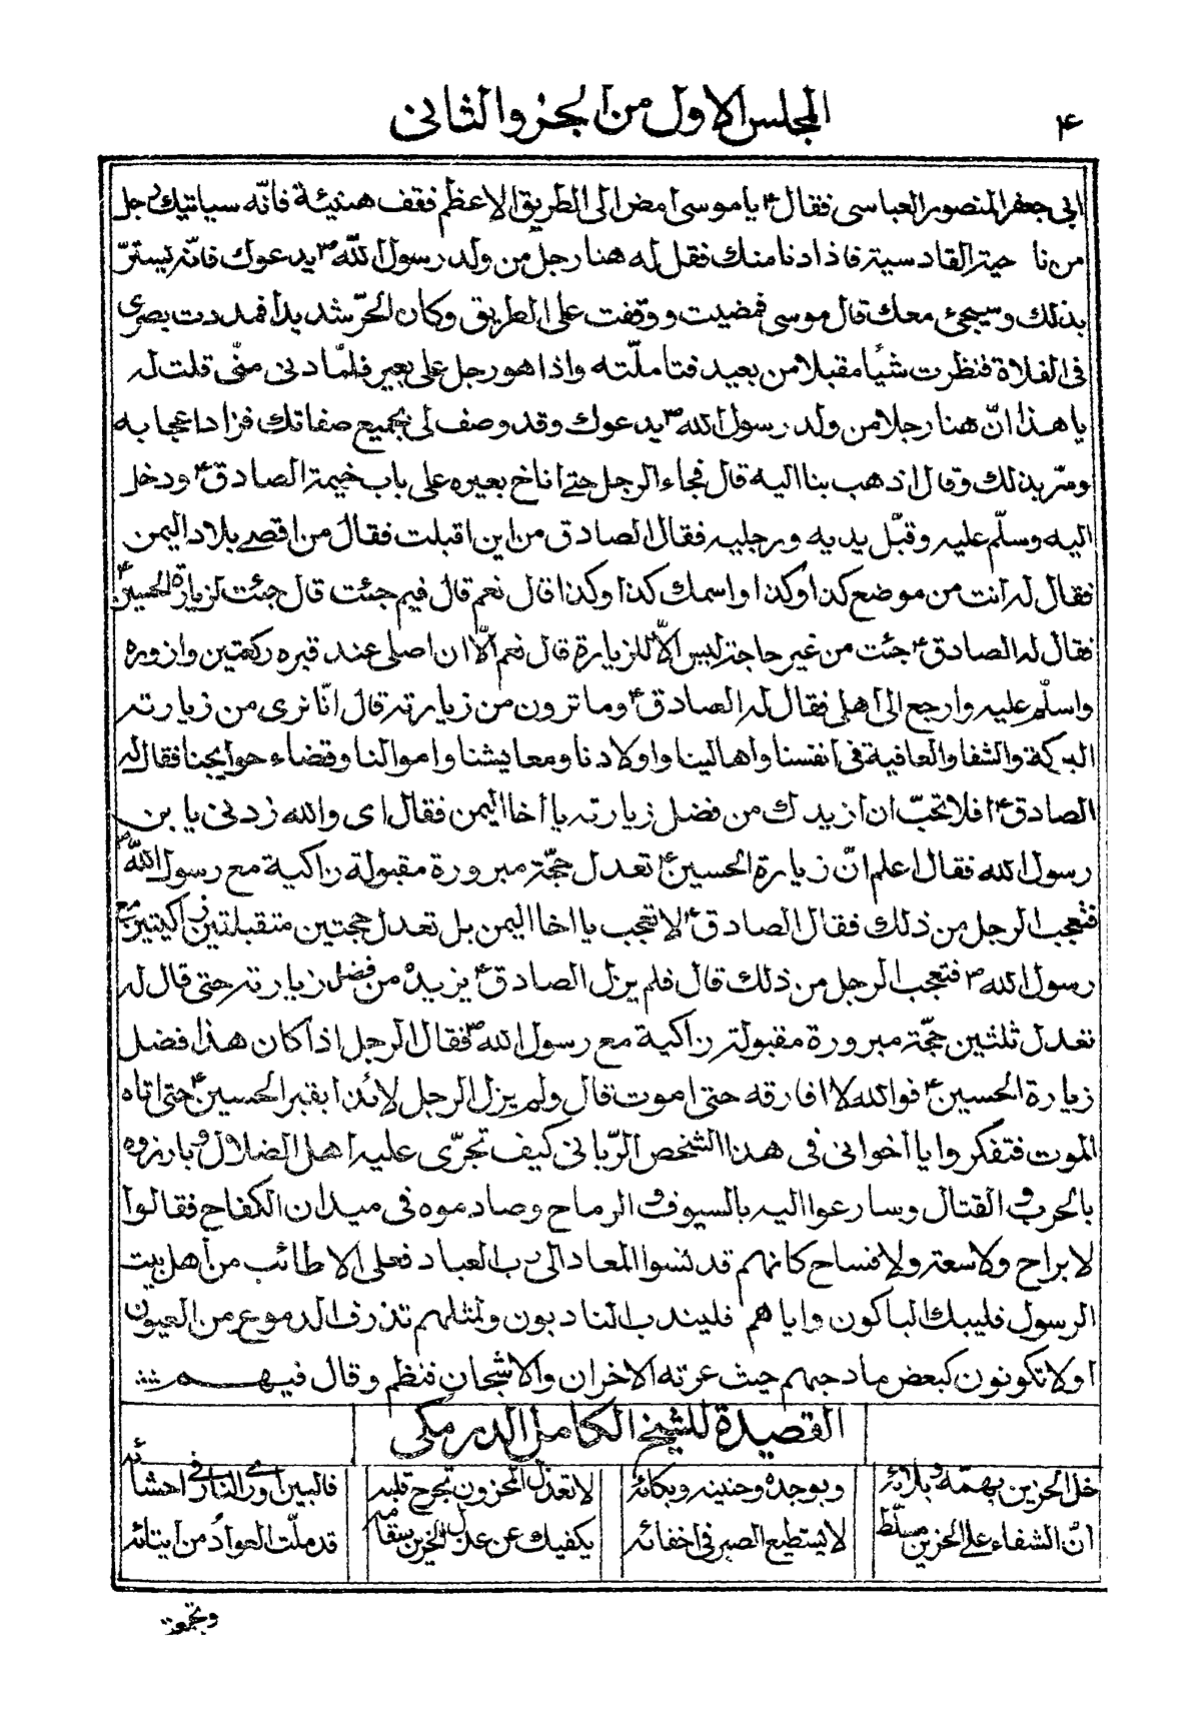 ۴
المجلس الاول من الجزء والثانى
ابى جعفر المنصور العباسى فقال ع يا موسى امض الى الطريق الاعظم فقف هنيئة فانّه سياتيك رجل
من نا حية القادسية فاذا دنا منك فقل له هنا رجل من ولد رسول الله ص يدعوك فانّه يستر
بذلك وسيجئ معك قال موسى فمضيت ووقفت على الطريق وكان الحرّ شديدا فمددت بصرى
فى الفلاة فنظرت شيأ مقبلا من بعيد فتاملّته واذا هو رجل على بعير فلمّا دنى منّى قلت له
يا هذا انّ هنا رجلا من ولد رسول الله ص يدعوك وقد وصف لى بجميع صفاتك فزاد اعجابه
وسرّ بذلك وقال اذهب بنا اليه قال فجاء الرجل حتى اناخ بعيره على باب خيمة الصادق ع ودخل
اليه وسلّم عليه وقبّل يديه ورجليه فقال الصادق من اين اقبلت فقال من اقصى بلاد اليمن
فقال له انت من موضع كذا وكذا واسمك كذا وكذا قال نعم قال فيم جئت قال جئت لزيارة الحسين ع
فقال له الصادق ع جئت من غير حاجة ليس الّا للزيارة قال نعم الّا ان اصلى عند قبره ركعتين وازوره
واسلّم عليه وارجع الى اهلى فقال له الصادق ع وما ترون من زيارته قال انّا نرى من زيارته
البركة والشفا والعافية فى انفسنا واهالينا واولادنا ومعايشنا واموالنا وقضاء حوايجنا فقال له
الصادق ع افلا تحبّ ان ازيدك من فضل زيارته يا اخا اليمن فقال اى والله زدنى يا بن
رسول الله فقال اعلم انّ زيارة الحسين ع تعدل حجّة مبرورة مقبولة زاكية مع رسول الله ص
فتعجب الرجل من ذلك فقال الصادق ع لا تعجب يا اخا اليمن بل تعدل حجتين متقبلتين زاكيتين مع
رسول الله ص فتعجب الرجل من ذلك قال فلم يزل الصادق ع يزيده من فضل زيارته حتى قال له
تعدل ثلثين حجّة مبرورة مقبولة زاكية مع رسول الله ص فقال الرجل اذا كان هذا فضل
زيارة الحسين ع فوالله لا افارقه حتى اموت قال ولم يزل الرجل لائذا بقبر الحسين ع حتى اتاه
الموت فتفكروا يا اخوانى فى هذا الشخص الرّبانى كيف تجرّى عليه اهل الضلال وبارزوه
بالحرب والقتال وسارعوا اليه بالسيوف والرماح وصادموه فى ميدان الكفاح فقالوا
لا براح ولا سعة ولا فساح كانهم قد نسوا المعاد الى رب العباد فعلى الاطائب من اهل بيت
الرسول فليبك الباكون وايا هم فليندب النادبون ولمثلهم تذرف الدموع من العيون
اولا تكونون كبعض مادحيهم حيث عرته الاخزان والاشجان فنظم وقال فيهم
القصيدة للشيخ الكامل الدرمكى
خل الحزين بهمّه وبلائه وبوجده وحنينه وبكائه لا تعذل المحزون تجرح قلبه فالبين اورى النار فى احشائه
انّ الشفاء على الحزين مسلّط لا يستطيع الصبر فى اخفائه يكفيك عن عذل الحزين سقامه قد ملّت العواد من ايتائه